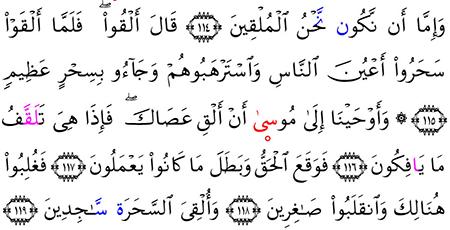 وَإِمَّا أَن نَّكُون نَّحْنُ ٱلْمُلْقِينَ ﴿١١٤﴾ قَالَ أَلْقُواْۖ فَلَمَّا أَلْقَوْاْ
سَحَرُواْ أَعْيُنَ ٱلنَّاسِ وَٱسْتَرْهَبُوهُمْ وَجَآءُو بِسِحْرٍ عَظِيمٍ
﴿١١٥﴾ ۞ وَأَوْحَيْنَا إِلَىٰ مُوسىٰ أَنْ أَلْقِ عَصَاكَۖ فَإِذَا هِىَ تَلَقَّفُ
مَا يَافِكُونَ ﴿١١٦﴾ فَوَقَعَ ٱلْحَقُّ وَبَطَلَ مَا كَانُواْ يَعْمَلُونَ ﴿١١٧﴾ فَغُلِبُواْ
هُنَالِكَ وَٱنقَلَبُواْ صَٰغِرِينَ ﴿١١٨﴾ وَأُلْقِىَ ٱلسَّحَرَة سَّٰجِدِينَ ﴿١١٩﴾